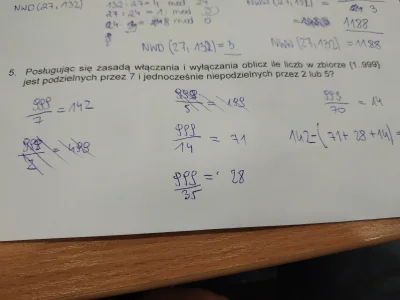 NWD(27,132)
132:27=4 mod 24
27:24=1 mod 3
NWD(27,132)=3
1188
NWD(27,132)=1188
5. Posługując się zasadą włączania i wyłączania oblicz ile liczb w zbiorze {1..999}
jest podzielnych przez 7 i jednocześnie niepodzielnych przez 2 lub 5?
999/7 = 142
999/5 = 199
999/70 = 14
999/2 = 499
999/14 = 71
142-(71+28+14)=
999/35 = 28